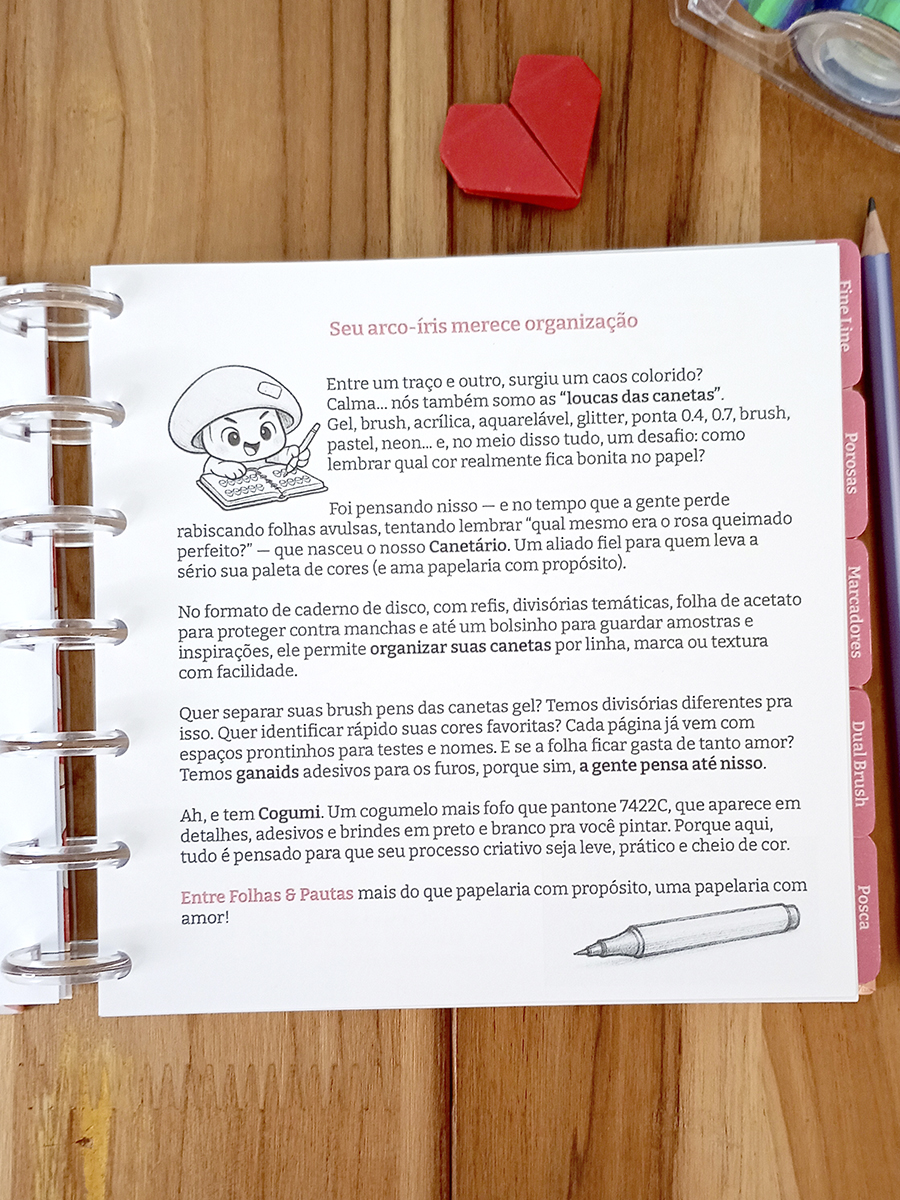 Seu arco-íris merece organização
Entre um traço e outro, surgiu um caos colorido?
Calma... nós também somo as “loucas das canetas”.
Gel, brush, acrílica, aquarelável, glitter, ponta 0.4, 0.7, brush,
pastel, neon... e, no meio disso tudo, um desafio: como
lembrar qual cor realmente fica bonita no papel?
Foi pensando nisso — e no tempo que a gente perde
rabiscando folhas avulsas, tentando lembrar “qual mesmo era o rosa queimado
perfeito?” — que nasceu o nosso Canetário. Um aliado fiel para quem leva a
sério sua paleta de cores (e ama papelaria com propósito).
No formato de caderno de disco, com refis, divisórias temáticas, folha de acetato
para proteger contra manchas e até um bolsinho para guardar amostras e
inspirações, ele permite organizar suas canetas por linha, marca ou textura
com facilidade.
Quer separar suas brush pens das canetas gel? Temos divisórias diferentes pra
isso. Quer identificar rápido suas cores favoritas? Cada página já vem com
espaços prontinhos para testes e nomes. E se a folha ficar gasta de tanto amor?
Temos ganaids adesivos para os furos, porque sim, a gente pensa até nisso.
Ah, e tem Cogumi. Um cogumelo mais fofo que pantone 7422C, que aparece em
detalhes, adesivos e brindes em preto e branco pra você pintar. Porque aqui,
tudo é pensado para que seu processo criativo seja leve, prático e cheio de cor.
Entre Folhas & Pautas mais do que papelaria com propósito, uma papelaria com
amor!
Fine Line
Porosas
Marcadores
Dual Brush
Posca